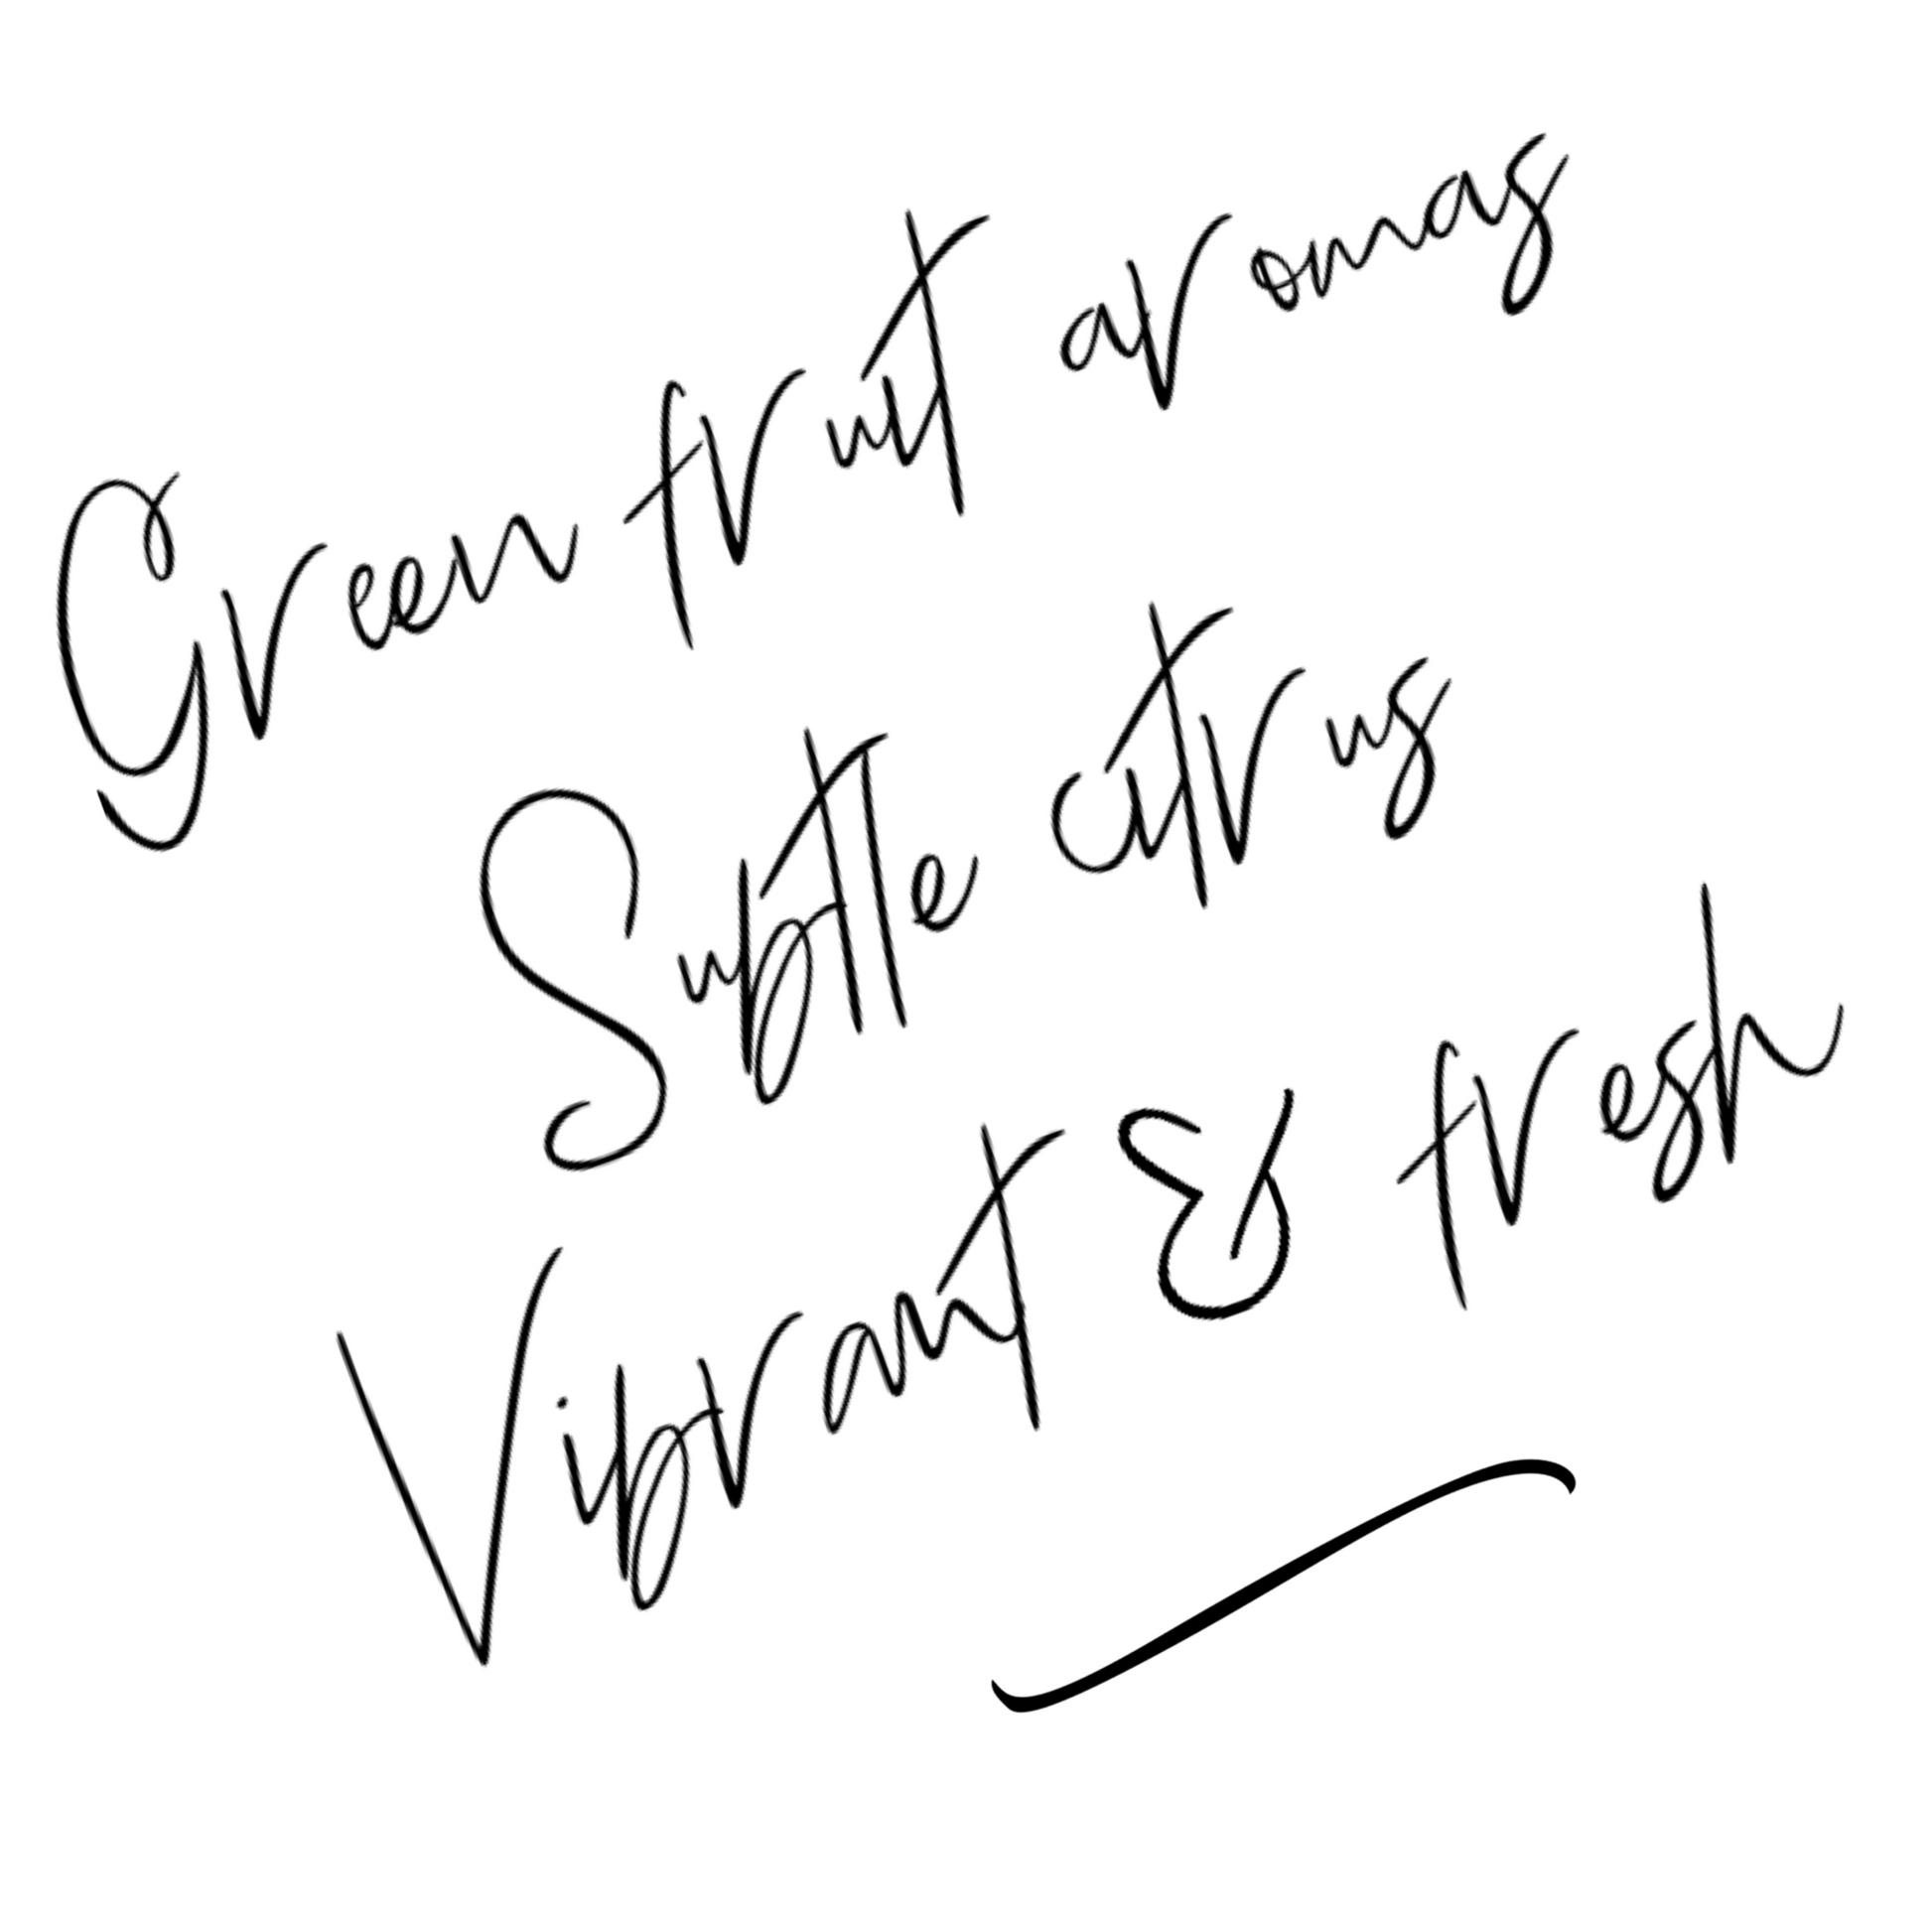 Green fruit aromas
Subtle citrus
Vibrant & fresh